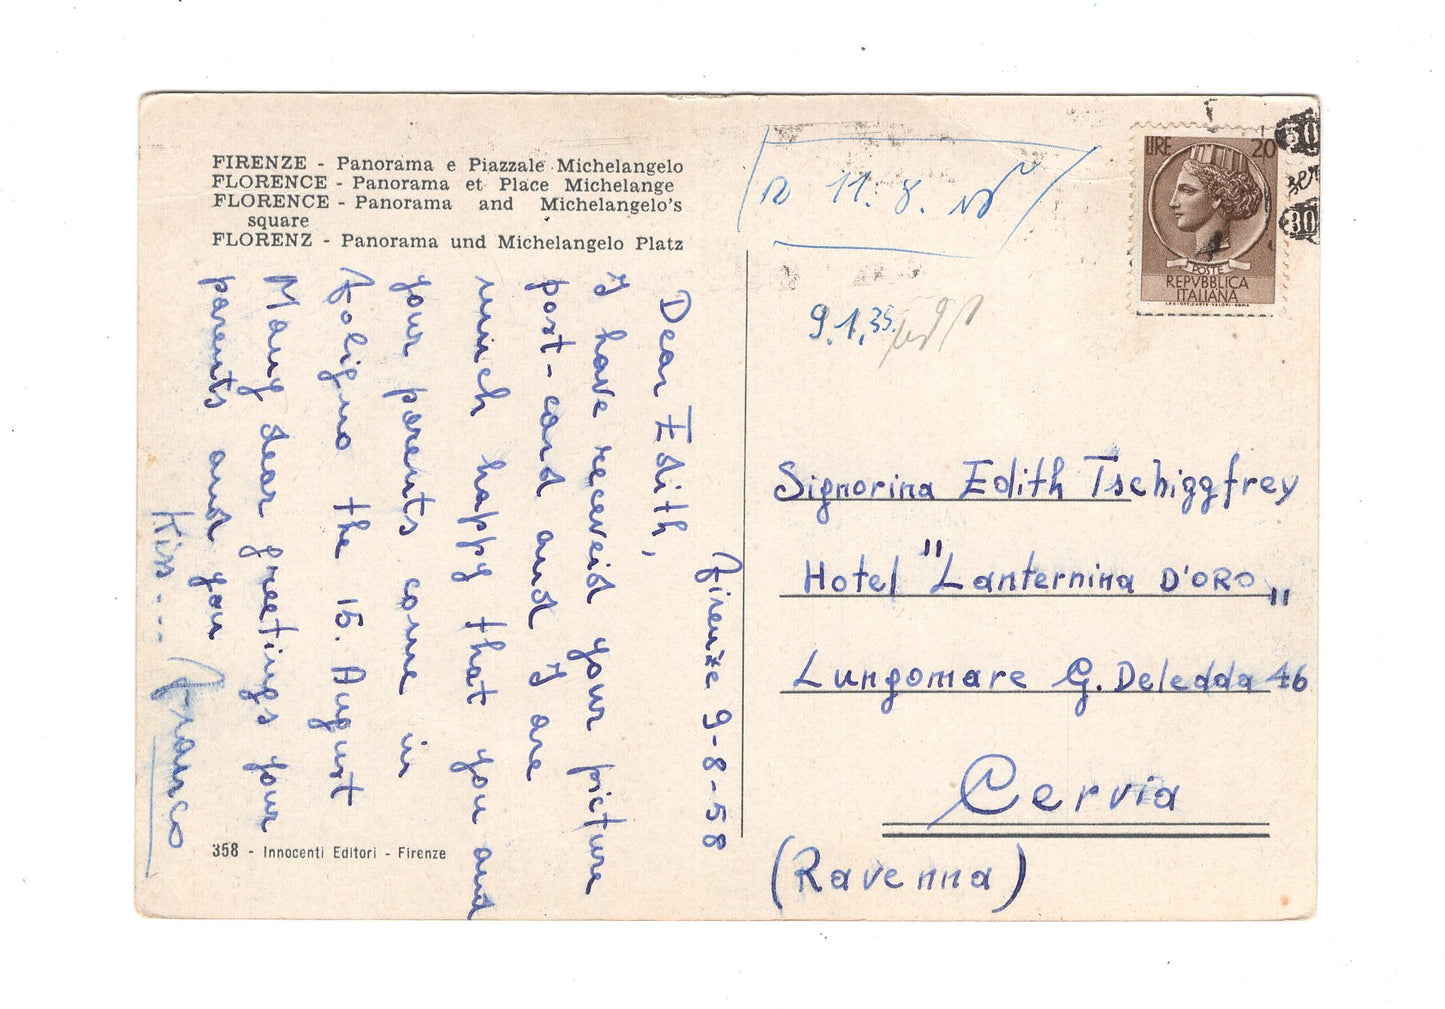 FIRENZE - Panorama e Piazzale Michelangelo
FLORENCE - Panorama et Place Michelange
FLORENCE - Panorama and Michelangelo's
square
FLORENZ - Panorama und Michelangelo Platz
Firenze 9-8-58
Dear Edith,
I have receveid your picture
post-card and I are
much happy that you and
your parents come in
Foligno the 15. August
Many dear greetings your
parents and you
Kiss.... Franco
358 - Innocenti Editori - Firenze
11. 8.
9.1.35.
LIRE 20
POSTE
REPVBBLICA
ITALIANA
30
30
Signorina Edith Tschiggfrey
Hotel "Lanternina D'ORO"
Lungomare G. Deledda 46
Cervia
(Ravenna)